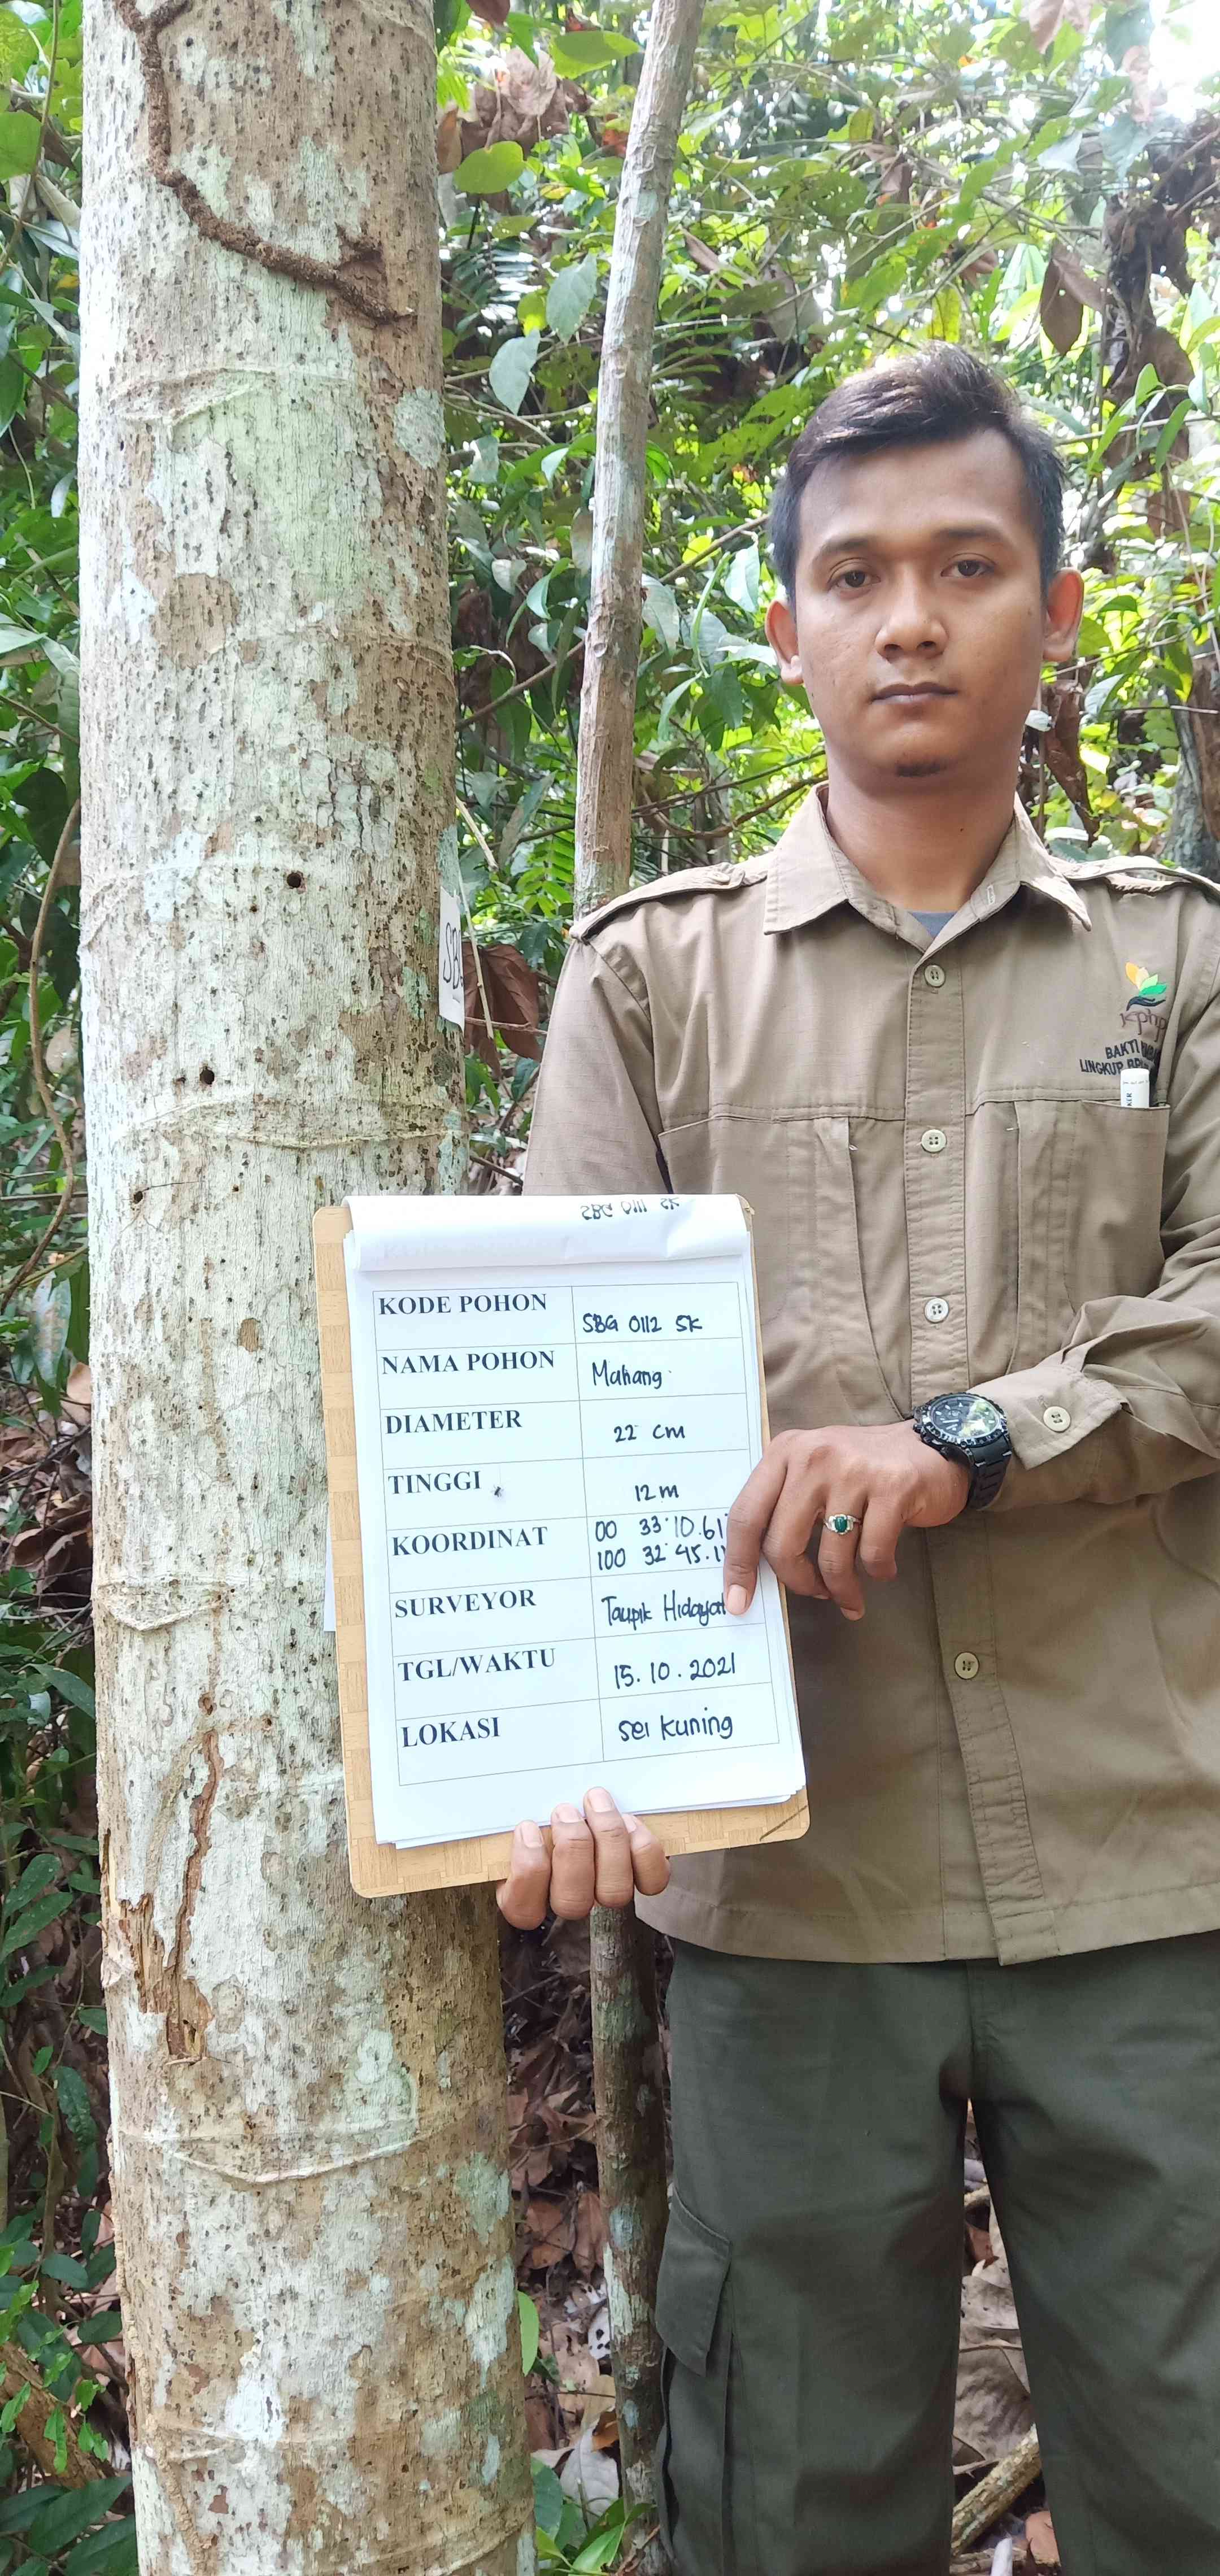 SBG
Kphp
BAKTI
LINGKUP
KER
SBG 0111 SK
KODE POHON SBG 0112 SK
NAMA POHON Mahang
DIAMETER 22 cm
TINGGI 12 m
KOORDINAT 00 33' 10.61
100 32' 45.1
SURVEYOR Taupik Hidayat
TGL/WAKTU 15.10.2021
LOKASI Sei Kuning